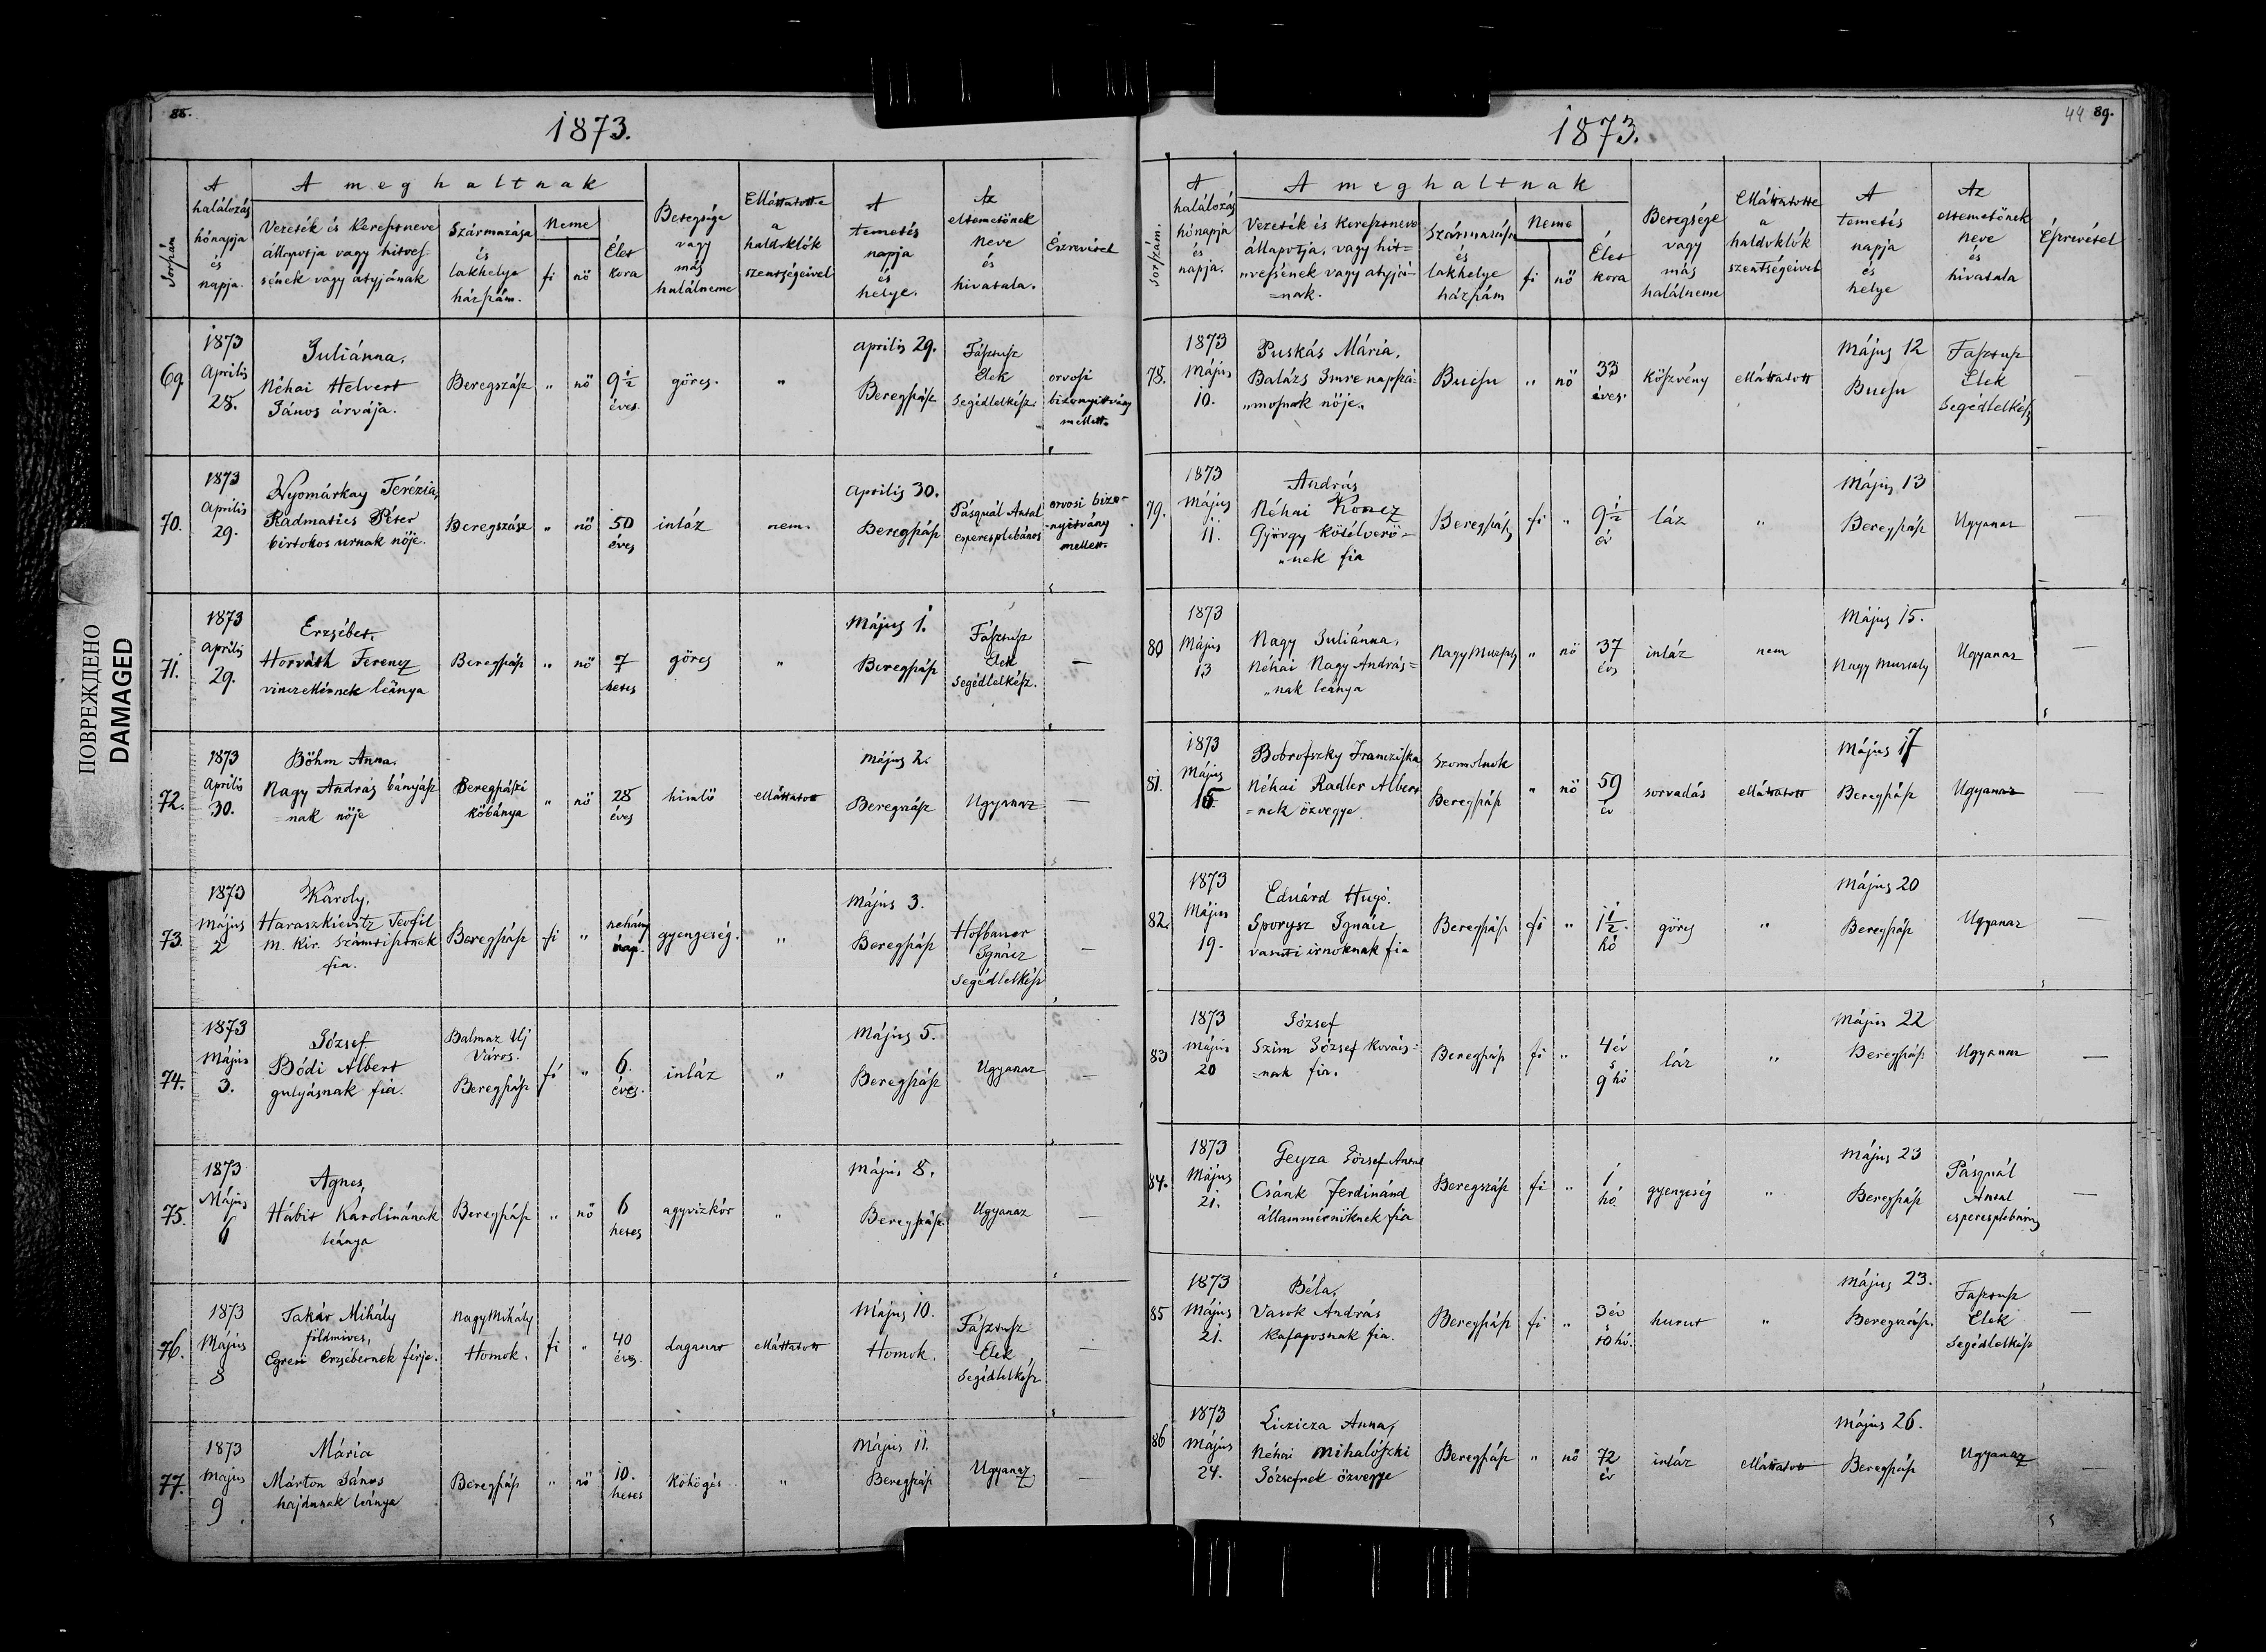 88.
1873.
A meghaltnak
Sorszám
A halálozás hónapja és napja.
Vezeték és keresztneve állapotja vagy hitvesének vagy atyjának
Származása és lakhelye házszám.
Neme
fi
nő
Élet kora
Betegsége vagy más halálneme
Elláttatott-e a haldoklók szentségeivel
A temetés napja és helye.
Az eltemetőnek neve és hivatala.
Észrevétel
69. 1873 Április 28. Juliánna, Néhai Helvert János árvája. Beregszász „ nő 9½ éves. görcs. „ Április 29. Beregszász Elek segédlelkész. orvosi bizonyitvány mellett.
70. 1873 Április 29. Nyomárkay Terézia, Radmatics Péter birtokos urnak nője. Beregszász „ nő 50 éves inláz nem. Április 30. Beregszász Pásquál Antal esperesplébános orvosi bizonyitvány mellett.
71. 1873 Április 29. Erzsébet. Horváth Ferencz vinczellérnek leánya Beregszász „ nő 7 hetes görcs „ Május 1. Beregszász Elek segédlelkész. —
72. 1873 Április 30. Böhm Anna. Nagy András bányász=nak nője Beregszászi kőbánya „ nő 28 éves himlő elláttatott Május 2. Beregszász Ugyanaz —
73. 1873 Május 2 Károly, Haraszkievitz Teofil m. kir. fia. Beregszász fi „ néhány nap. gyengeség. „ Május 3. Beregszász Hofbauer Ignácz segédlelkész —
74. 1873 Május 3. József Bódi Albert gulyásnak fia. Balmaz Uj Város. Beregszász fi „ 6. éves. inláz „ Május 5. Beregszász Ugyanaz —
75. 1873 Május 6 Agnes, Hábit Károlinának leánya Beregszász „ nő 6 hetes agyvizkór „ Május 8. Beregszász. Ugyanaz —
76. 1873 Május 8 Takár Mihály földmives, Egresi Erzsébetnek férje. Nagy Mihály Homok. fi „ 40 éves. daganat elláttatott Május 10. Homok. Elek segédlelkész —
77. 1873 Május 9 Mária Márton János hajdunak leánya Beregszász „ nő 10. hetes Köhögés „ Május 11. Beregszász Ugyanaz —
44 89.
1873.
A meghaltnak
Sorszám.
A halálozás hónapja és napja.
Vezeték és keresztneve állapotja, vagy hit=vesének vagy atyjá=nak.
Származása és lakhelye házszám
Neme
fi
nő
Élet kora
Betegsége vagy más halálneme
Elláttatotte a haldoklók szentségeivel
A temetés napja és helye
Az eltemetőnek neve és hivatala
Észrevétel
78. 1873 Május 10. Puskás Mária, Balázs Imre napszámosnak nője. Bucsu „ nő 33 éves. köszvény elláttatott Május 12 Bucsu Elek segédlelkész —
79. 1873 Május 11. András Néhai Koncz György kötélverő=nek fia Beregszász fi „ 9½ év láz „ Május 13 Beregszász Ugyanaz —
80 1873 Május 13 Nagy Juliánna, Néhai Nagy András=nak leánya Nagy Muzsaly „ nő 37 éves inláz nem Május 15. Nagy Muzsaly Ugyanaz —
81. 1873 Május 15. Bobrofszky Francziska Néhai Radler Albert=nek özvegye Szomolnok Beregszász „ nő 59 év sorvadás elláttatott Május 17 Beregszász Ugyanaz —
82. 1873 Május 19. Eduárd Hugó. Sporysz Ignácz vasuti irnoknak fia Beregszász fi „ 1½ hó görcs „ Május 20 Beregszász Ugyanaz —
83 1873 Május 20 József Szim József kovács=nak fia. Beregszász fi „ 4 év s 9 hó láz „ Május 22 Beregszász Ugyanaz —
84. 1873 Május 21. Geyza József Antal Csánk Ferdinánd állammérnöknek fia Beregszász fi „ 1 hó. gyengeség „ Május 23 Beregszász Pásquál Antal esperesplébános —
85 1873 Május 21. Béla, Vasok András fia. Beregszász fi „ 3 év s 10 hó. hurut „ Május 23. Beregszász. Elek segédlelkész —
86 1873 Május 24. Liczicza Anna, Néhai Mihalószki Józsefnek özvegye Beregszász „ nő 72 év inláz elláttatott Május 26. Beregszász Ugyanaz —
ПОВРЕЖДЕНО
DAMAGED